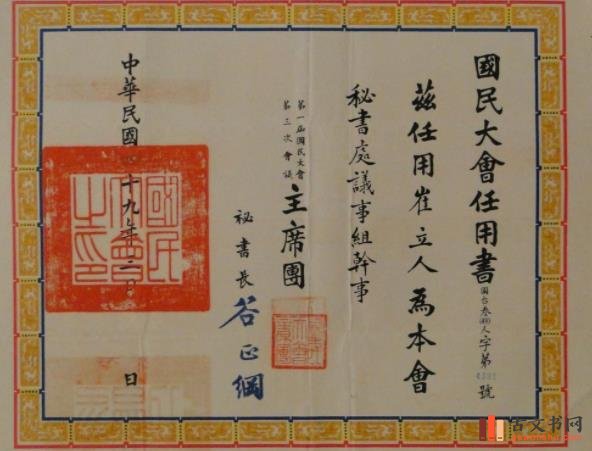 國民大會任用書
國台叁人字第號
茲任用崔立人為本會
秘書處議事組幹事
第一屆國民大會
第三次會議
主席團
秘書長 谷正綱
中華民國十九年二日
國民大會之印
日
古文书网